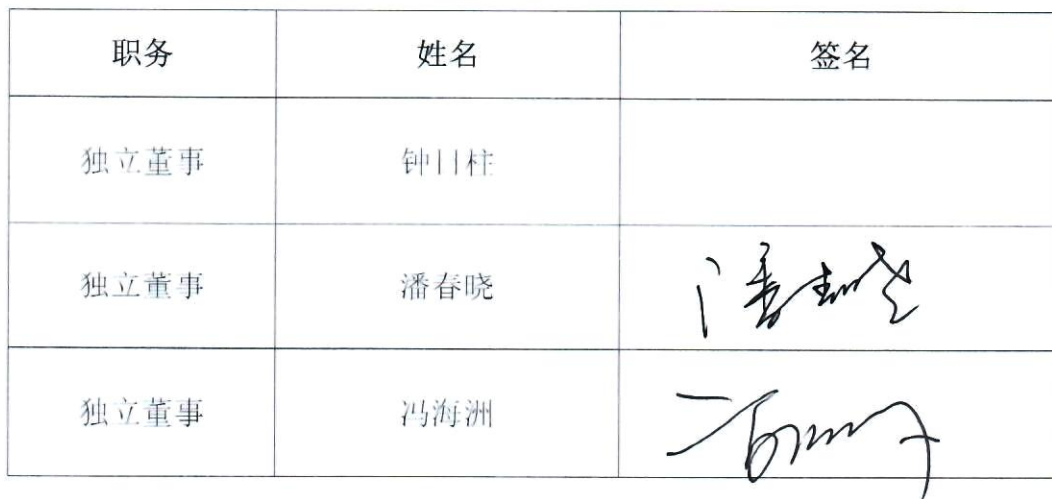 职务 姓名 签名
独立董事 钟日柱
独立董事 潘春晓 潘春晓
独立董事 冯海洲